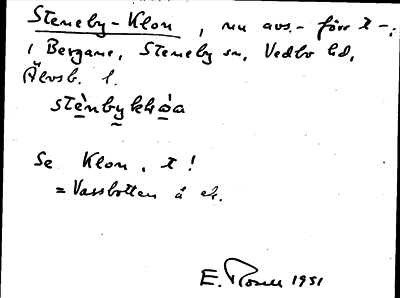 Steneby-Klon, nu avs.- förr t -:
i Bergane, Steneby sn, Vedbo hd,
Älvsb. l.
stènbykhòa
Se Klon, t!
= Vassbotten å ek.
E. Rosell 1951